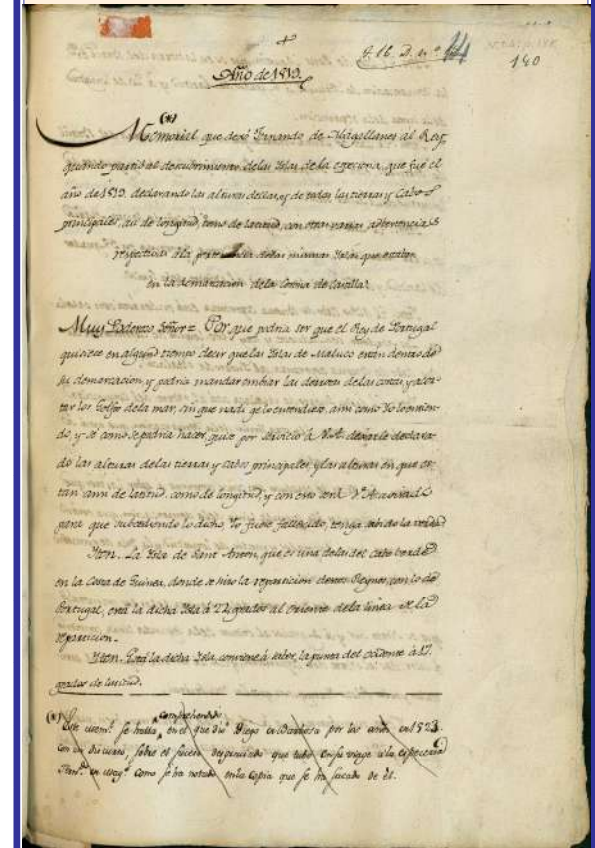 +
Año de 1519.
140
(*)
Memorial que dexó Fernando de Magallanes al Rey,
quando partió al descubrimiento de las Yslas de la especería, que fué el
año de 1519. declarando las alturas dellas, y de todas las tierras y Cabos
principales, así de longitud, como de latitud, con otras varias advertencias
respectivas á la pertenencia de las mismas Yslas que estaban
en la demarcacion de la Corona de Castilla.
Muy Poderoso Señor = Porque podría ser que el Rey de Portugal
quisiese en algund tiempo decir que las Yslas de Maluco están dentro de
su demarcacion, y podría mandar cambiar las derrotas de las costas y acor-
tar los Golfos de la mar, sin que nadi ge lo entendiese, ansi como Yo lo entien-
do, y sé como se podría hacer, quise por servicio de V.A. dexarle declara-
do las alturas de las tierras y cabos principales, y las alturas en que es-
tan ansi de latitud, como de longitud, y con esto será V.A. avisado
para que subcediendo lo dicho, Yo fuese fallecido, tenga sabido la verdad
Yten. La Ysla de Sant Anton, que es una de las del cabo verde
en la Costa de Guinea, donde se hizo la reparticion destos Reynos, con lo de
Portugal, está la dicha Ysla á 22 grados al oriente de la linea de la
reparticion.
Yten. Está la dicha Ysla, conviene á saber, la punta del ocidente á 17
grados de latitud.
(*) Este docum.to se halla comprehendido en el que dió Diego de Barbosa por los años de 1523.
con un discurso, sobre el suceso desgraciado que tubo en su viage á la especería
como se ha notado en la copia que se ha sacado de él.